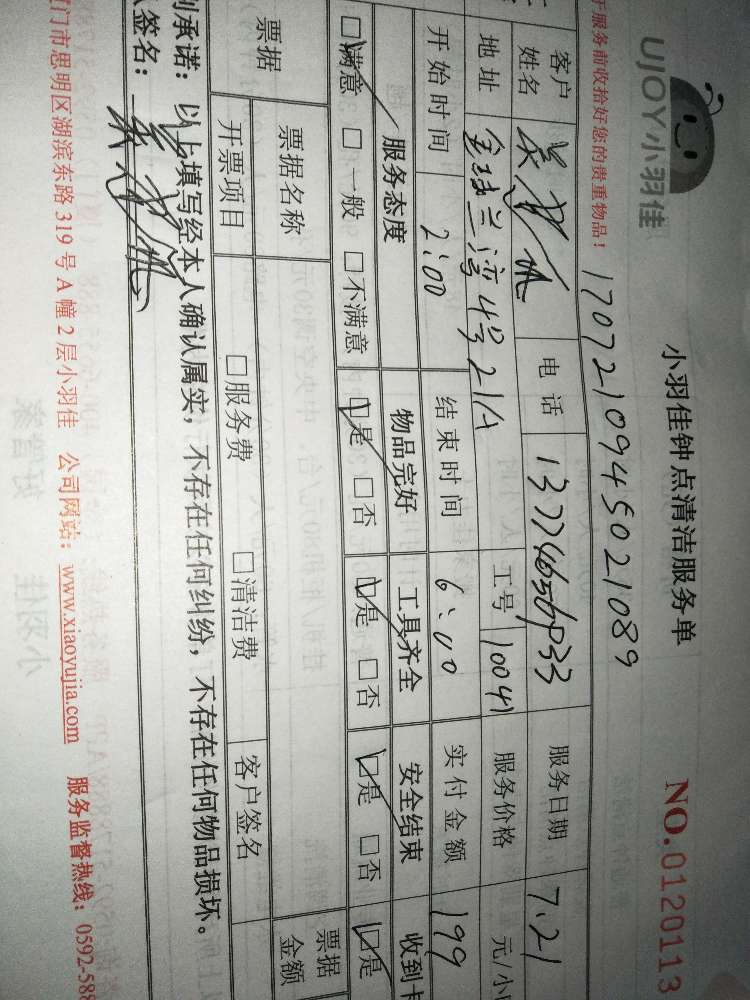 UJOY小羽佳
小羽佳钟点清洁服务单
NO.0120113
于服务前收拾好您的贵重物品！
1707210945021089
客户姓名 电话 服务日期 7.21
地址 金琺兰湾4号21A 工号 10041 服务价格 元/小
开始时间 2:00 结束时间 6:00 实付金额 199
服务态度 物品完好 工具齐全 安全结束 收到卡
☑满意 □一般 □不满意 ☑是 □否 ☑是 □否 ☑是 □否 ☑是
票据 票据名称 票据金额
开票项目 □服务费 □清洁费 客户签名
承诺：以上填写经本人确认属实，不存在任何纠纷，不存在任何物品损坏。
签名：
门市思明区湖滨东路319号A幢2层小羽佳 公司网站：www.xiaoyujia.com 服务监督热线：0592-588